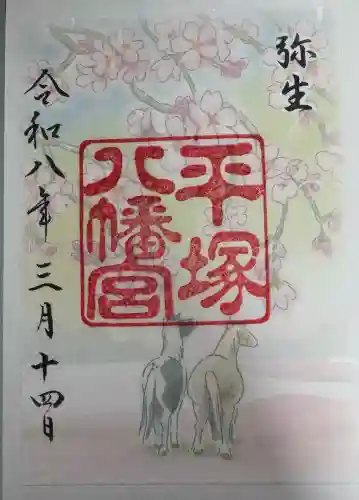 弥生
平塚
八幡宮
令和八年三月十四日